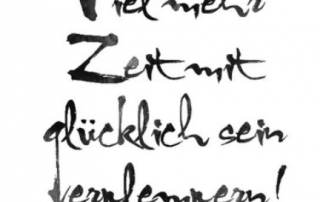 Viel mehr
Zeit mit
glücklich sein
verplempern!